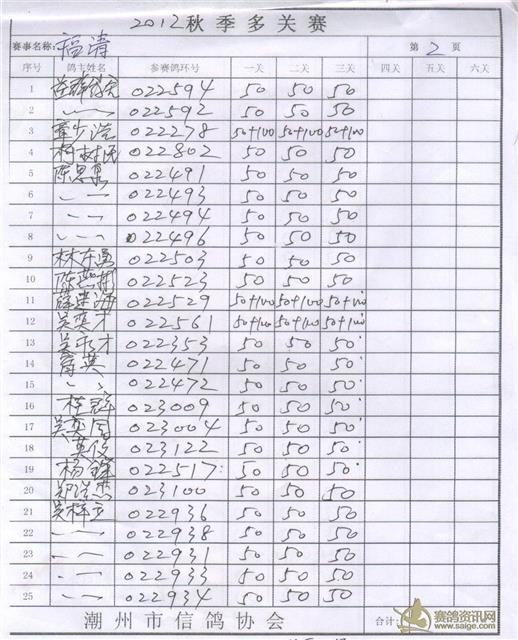 2012秋季多关赛
赛事名称: 福清 第 2 页
序号 鸽主姓名 参赛鸽环号 一关 二关 三关 四关 五关 六关
1 022594 50 50 50
2 〃 022592 50 50 50
3 章少浩 022278 50+100 50+100 50+100
4 柯树民 022802 50 50 50
5 陈思集 022491 50 50 50
6 〃 022493 50 50 50
7 〃 022494 50 50 50
8 〃 022496 50 50 50
9 林东勇 022503 50 50 50
10 陈燕彬 022523 50 50 50
11 薛建海 022529 50+100 50+100 50+100
12 吴奕才 022561 50+100 50+100 50+100
13 022353 50 50 50
14 022471 50 50 50
15 〃 022472 50 50 50
16 桂群 023009 50 50 50
17 吴奕国 023004 50 50 50
18 英俊 023122 50 50 50
19 杨锋 022517 50 50 50
20 郑洪杰 023100 50 50 50
21 吴梓立 022936 50 50 50
22 〃 022938 50 50 50
23 〃 022931 50 50 50
24 〃 022933 50 50 50
25 〃 022934 50 50 50
潮州市信鸽协会 合计:
赛鸽资讯网
www.saige.com